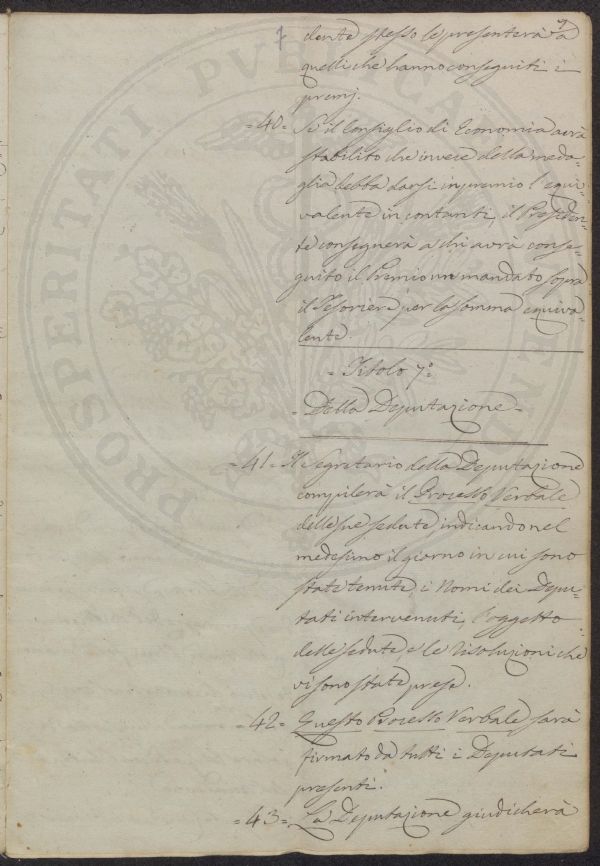 7
9
dente stesso le presenterà a
quelli che hanno conseguiti i
premj.
=40= Se il Consiglio di Economia avrà
stabilito che invece della meda=
glia debba darsi in premio l'equi=
valente in contanti, il Presiden=
te consegnerà a chi avrà conse=
guito il Premio un mandato sopra
il Tesoriere per la somma equiva=
lente.
= Titolo 7°=
= Della Deputazione =
=41= Il Segretario della Deputazione
compilerà il Processo Verbale
delle sue sedute indicando nel
medesimo il giorno in cui sono
state tenute, i Nomi dei Depu=
tati intervenuti, l'oggetto
delle sedute, e le risoluzioni che
vi sono state prese.
=42= Questo Processo Verbale sarà
firmato da tutti i Deputati
presenti.
=43= La Deputazione giudicherà
PROSPERITATI PUBLICAE